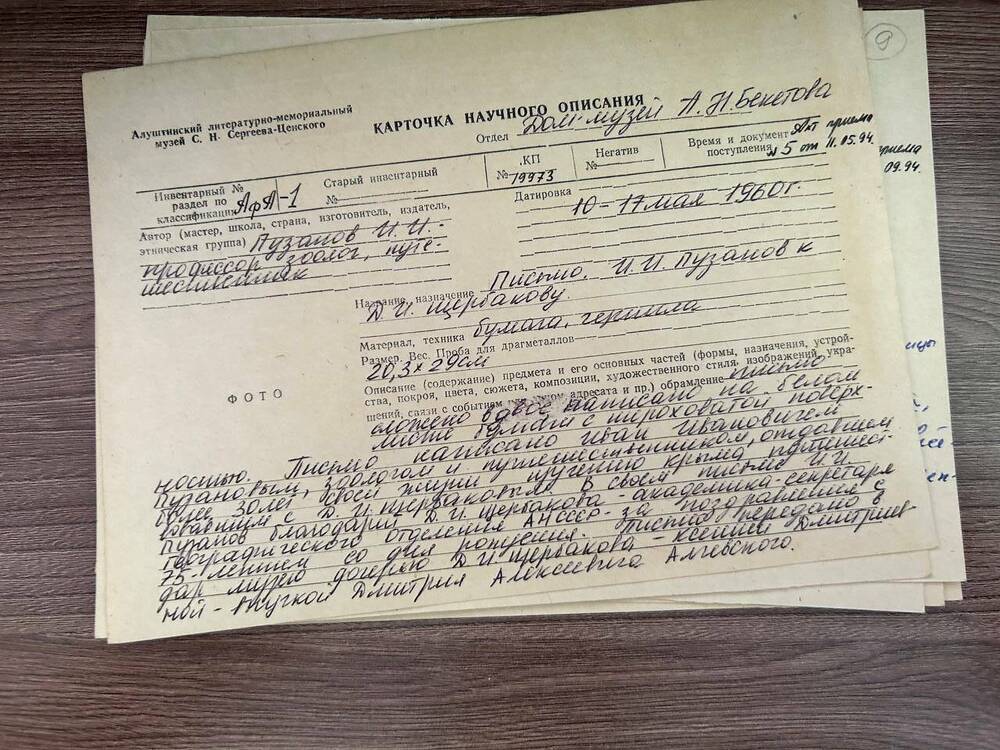 Алуштинский литературно-мемориальный
музей С. Н. Сергеева-Ценского
КАРТОЧКА НАУЧНОГО ОПИСАНИЯ
Отдел Дом-музей А.Н.Бекетова
Инвентарный №
раздел по
классификации АфА-1
Старый инвентарный
№
КП
№ 19973
Негатив
№
Время и документ Акт приема
поступления №5 от 11.05.94.
Автор (мастер, школа, страна, изготовитель, издатель,
этническая группа) Пузанов И.И. -
профессор зоолог, путе-
шественник
Датировка
10-17 мая 1960г.
Название, назначение Письмо. И.И. Пузанов к
Д.И. Щербакову.
Материал, техника бумага, чернила
Размер. Вес. Проба для драгметаллов
20,3 × 29см
Описание (содержание) предмета и его основных частей (формы, назначения, устрой-
ства, покроя, цвета, сюжета, композиции, художественного стиля, изображений, укра-
шений, связи с событием адресата и пр.) обрамление письмо
сложено вдвое написано на белом
листе бумаги с шероховатой поверх-
ФОТО
ностью. Письмо написано Иван Ивановичем
Пузановым, зоологом и путешественником, отдавшем
более 30 лет своей жизни изучению Крыма
с Д.И. Щербаковым. В своем письме И.И.
Пузанов благодарит Д.И. Щербакова - академика-секретаря
географического отделения АН СССР - за поздравления с
75-летием со дня рождения. Письмо передано в
дар музею дочерью Д.И. Щербакова - Ксенией Дмитриев-
ной - внучкой Дмитрия Алексеевича Алчевского.
9
приема
09.94.